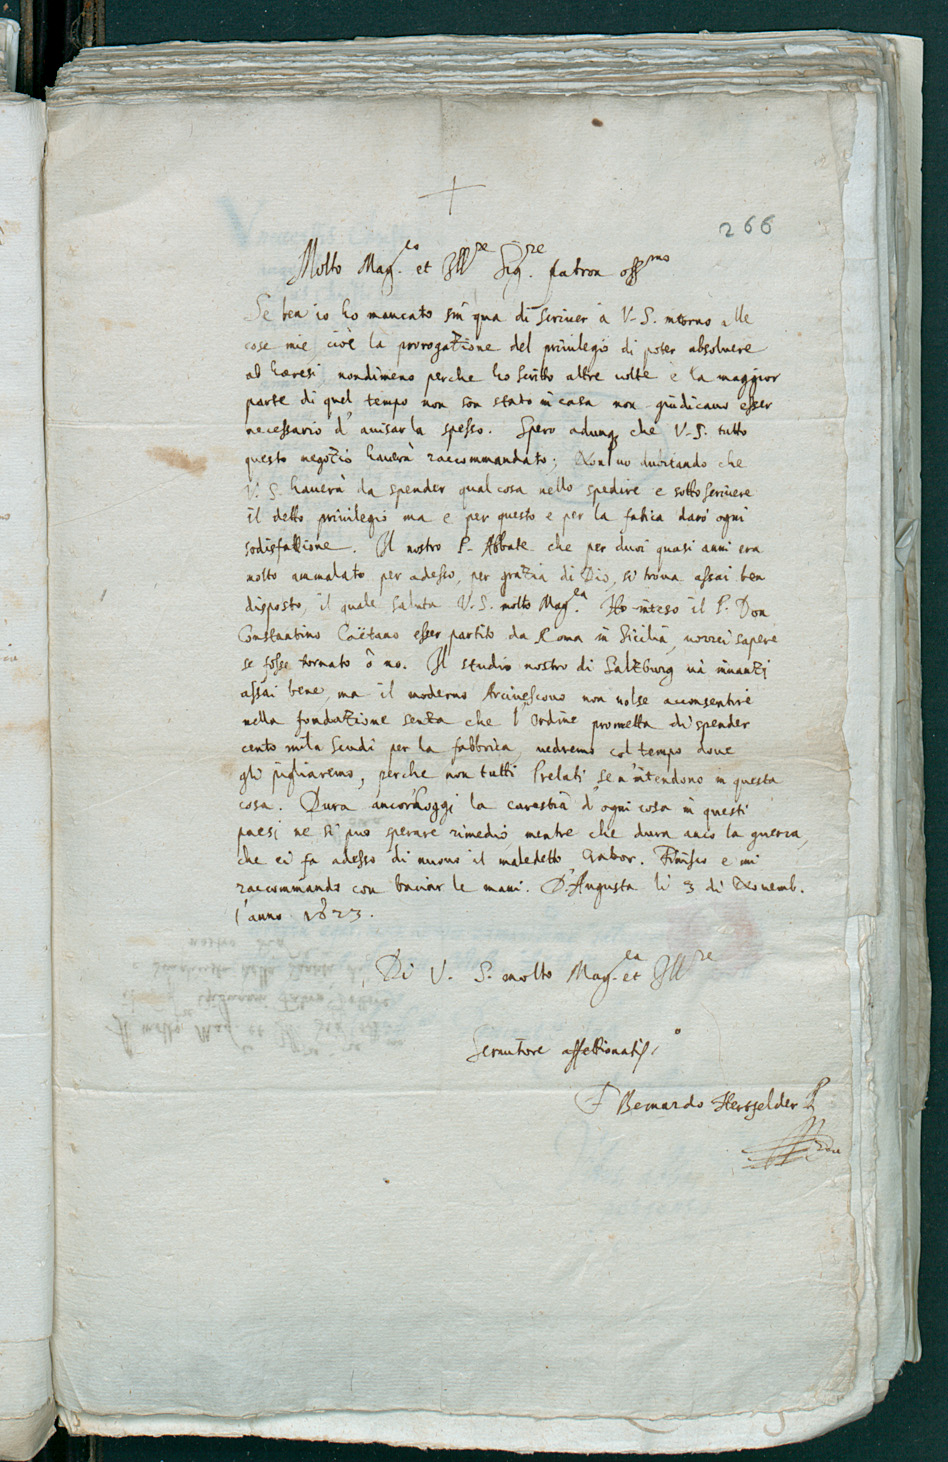 266
Molto Mag.co et Ill.re Sig.re patron oss.mo
Se ben io ho mancato sin qua di scriver à V. S. intorno alle
cose mie, cioè la prorogatione del privilegio di poter absolvere
ab haeresi nondimeno perche ho scritto altre volte e la maggior
parte di quel tempo non son stato in casa non giudicavo esser
necessario d'avisarla spesso. Spero adunq3 che V. S. tutto
questo negotio haverà raccommandato; Non vo dubitando che
V. S. haverà da spender qualcosa nello spedire e sottoscrivere
il detto privilegio ma e per questo e per la fatica darò ogni
sodisfattione. Il nostro P. Abbate che per duoi quasi anni era
molto ammalato per adesso, per gratia di Dio, si trova assai ben
disposto, il quale saluta V. S. molto Mag.ca Ho inteso il P. Don
Constantino Caëtano esser partito da Roma in Sicilia, vorrei sapere
se fosse tornato ô no. Il studio nostro di Saltzburg và inuanzi
assai bene, ma il moderno Arcivescovo non volse acconsentire
nella fondatione senza che l'Ordine prometta di spender
cento mila scudi per la fabbrica, vedremo col tempo dove
gli pigliaremo, perche non tutti Prelati se n'intendono in questa
cosa. Dura ancor'hoggi la carestia d'ogni cosa in questi
paesi ne si può sperare rimedio, mentre che dura anco la guerra,
che ci fa adesso di nuovo il maledetto Gabor. Finisco e mi
raccommando con baciar le mani. D'Augusta li 3 di Novemb.
l'anno 1623.
Di V. S. molto Mag.ca et Ill.re
Servitore affettionatiss.o
F Bernardo Hertfelder